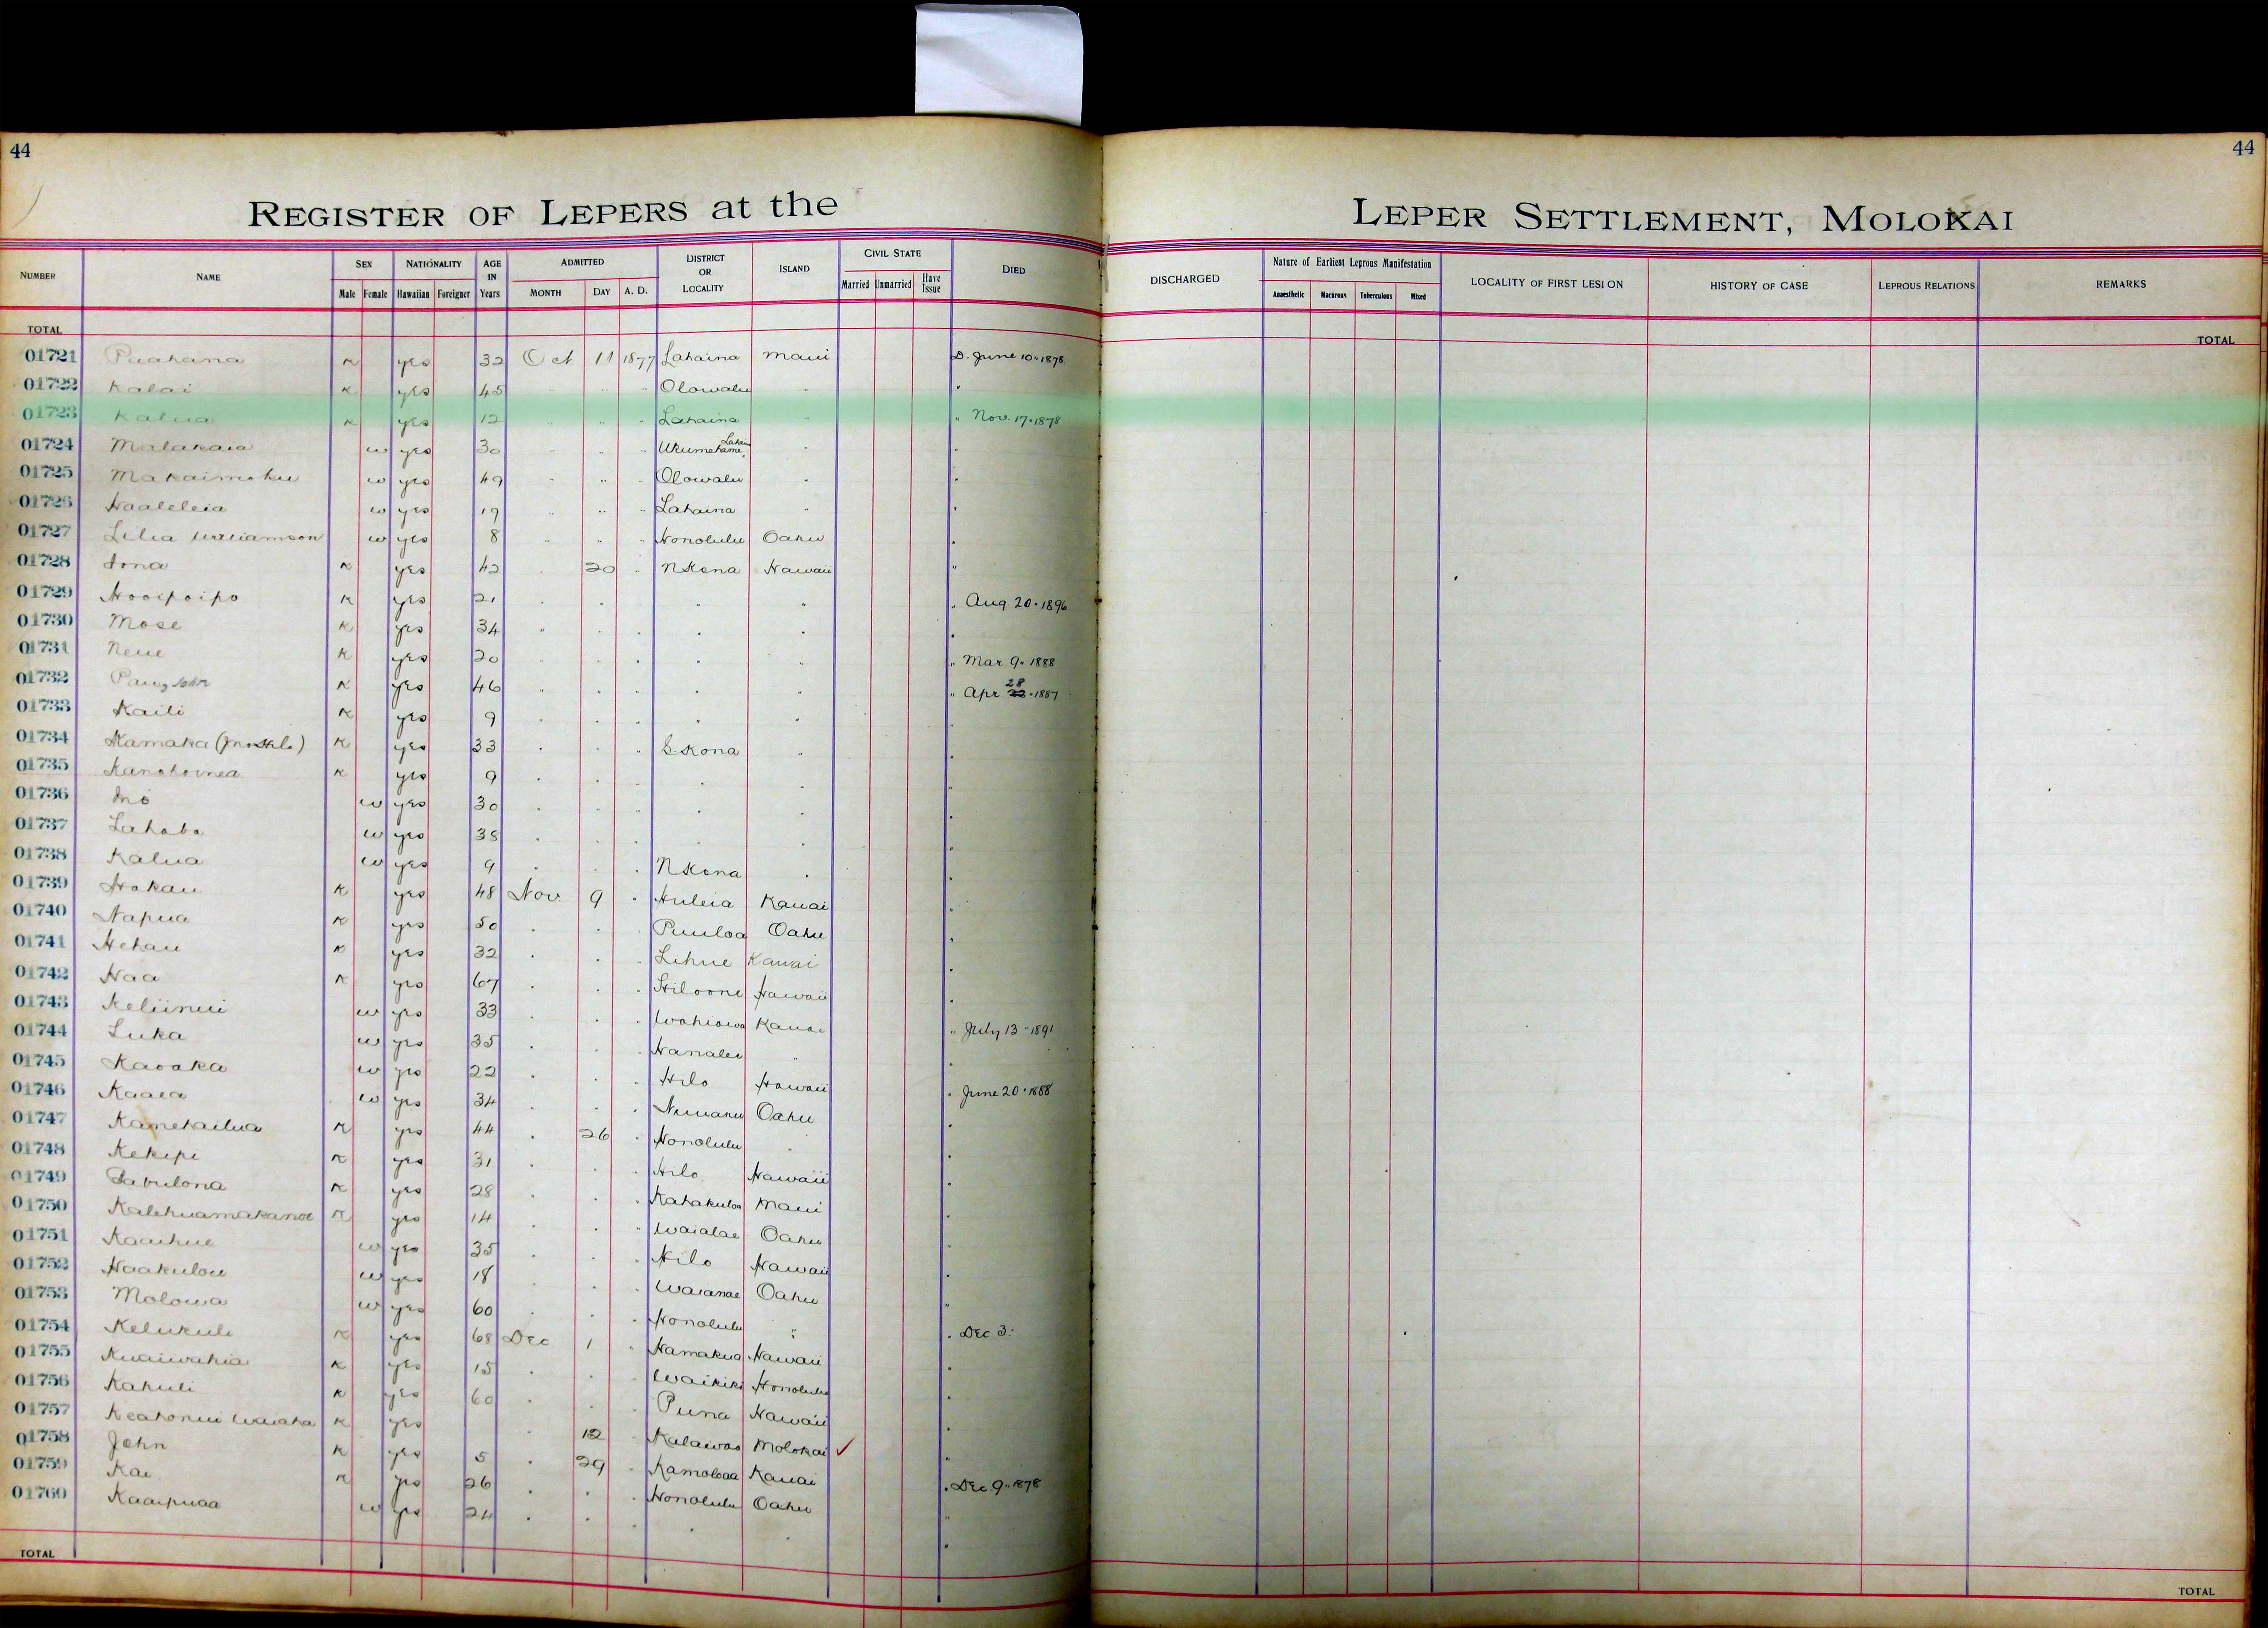 44
44
REGISTER OF LEPERS at the LEPER SETTLEMENT, MOLOKAI
NUMBER NAME SEX NATIONALITY AGE IN Years ADMITTED DISTRICT OR LOCALITY ISLAND CIVIL STATE DIED DISCHARGED Nature of Earliest Leprous Manifestation LOCALITY OF FIRST LESION HISTORY OF CASE LEPROUS RELATIONS REMARKS
Male Female Hawaiian Foreigner MONTH DAY A. D. Married Unmarried Have Issue Anaesthetic Macurous Tuberculous Mixed
TOTAL TOTAL
01721 Puahana K yes 32 Oct 11 1877 Lahaina Maui D. June 10 " 1878
01722 Kalai K yes 45 " " " Olowalu "
01723 Kalua K yes 12 " " Lahaina " " Nov. 17 " 1878
01724 Malakaia w yes 30 " " " Ukumehame, Lahaina " "
01725 Makaimoku w yes 49 " " " Olowalu " "
01726 Haaleleia w yes 19 " " " Lahaina " "
01727 Lilia Williamson w yes 8 " " " Honolulu Oahu "
01728 Iona K yes 42 " 20 " N Kona Hawaii "
01729 Hooipoipo K yes 21 " " " " " Aug. 20 " 1896
01730 Mose K yes 34 " " " " " "
01731 Neue K yes 20 " " " " " Mar 9 " 1888
01732 K yes 46 " " " " " " Apr 28 " 1887
01733 Kaili K yes 9 " " " " "
01734 Kamaka K yes 33 " " " S. Kona " "
01735 K yes 9 " " " " "
01736 w yes 30 " " " " " "
01737 w yes 38 " " " " "
01738 Kalua w yes 9 " " " N Kona " "
01739 Hokau K yes 48 Nov 9 " Huleia Kauai "
01740 Napua K yes 50 " " " Puuloa Oahu "
01741 Hehau K yes 32 " " " Lihue Kauai "
01742 Naa K yes 67 " " " Hiloone Hawaii "
01743 Keliinui w yes 33 " " " Wahiawa Kauai " July 13 " 1891
01744 Luka w yes 35 " " " Hanalei " "
01745 Kaoaka w yes 22 " " " Hilo Hawaii " June 20 " 1888
01746 Kaaea w yes 34 " " " Nuuanu Oahu "
01747 Kamekailua K yes 44 " 26 " Honolulu " "
01748 Kekipi K yes 31 " " " Hilo Hawaii "
01749 Zabulona K yes 28 " " " Kahakuloa Maui "
01750 Kalehuamakanoe K yes 14 " " " Waialae Oahu "
01751 Kaaihue w yes 35 " " " Hilo Hawaii "
01752 Haakulou w yes 18 " " " Waianae Oahu "
01753 Molowa w yes 60 " " " Honolulu " " Dec 3 "
01754 K yes 68 Dec 1 " Hamakua Hawaii "
01755 Kuaiwahia K yes 15 " " Waikiki Honolulu "
01756 Kahuli K yes 60 " " Puna Hawaii "
01757 K yes " 12 Kalawao Molokai ✓ "
01758 John K yes 5 " 29 " Kamoloaa Kauai " Dec 9 " 1878
01759 Kai K yes 26 " " " Honolulu Oahu "
01760 Kaaipuaa w yes 24 " " " " " "
TOTAL TOTAL